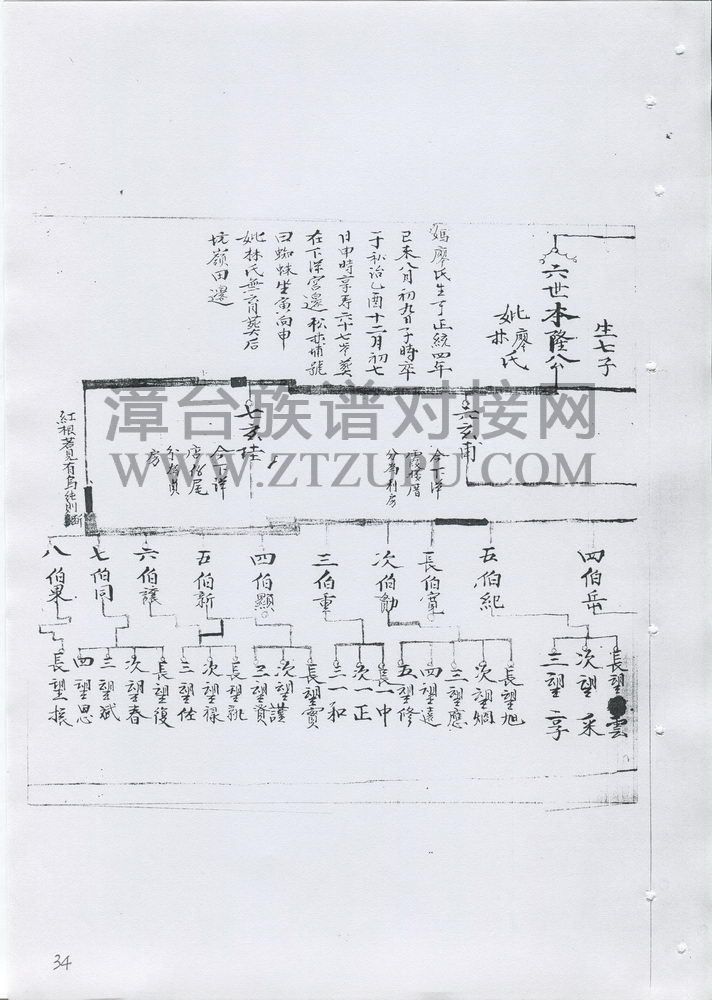 生七子
六世本隆公
妣廖氏
林
媽廖氏生于正統四年
己未八月初九日子時卒
于弘治乙酉十二月初七
日申時享寿六十七岁葬
在下洋宫邊松柏埔號
曰蜘蛛坐寅向申
妣林氏無育葬后
坑嶺田邊
六玄甫
今下洋
分為利房
七玄珪
今下洋
房
紅根若見有烏純則断
四伯岳
五伯紀
長伯寬
次伯勳
三伯重
四伯顯
五伯新
六伯讓
七伯同
八伯果
長望雲
次望采
三望享
長望旭
次望炯
三望應
四望遠
五望修
長一中
次一正
三一和
長望實
次望謹
三望資
長望
次望禄
三望佐
長望復
次望春
三望斌
四望思
長望
漳台族谱对接网
WWW.ZTZUPU.COM
34